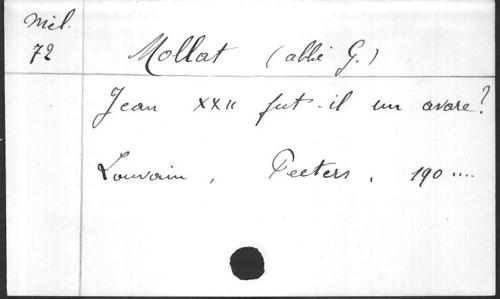 Mél.
72
Mollat (abbé G.)
Jean XXII fut-il un avare?
Louvain, Peeters, 190....